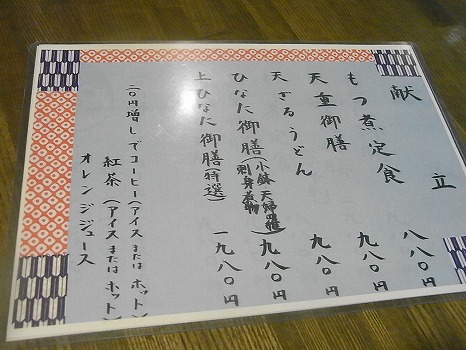 献立
もつ煮定食 八八〇円
天重御膳 九八〇円
天ざるうどん 九八〇円
ひなた御膳(小鉢 天婦羅 刺身 煮物) 九八〇円
上ひなた御膳(特選) 一九八〇円
二〇円増しでコーヒー(アイスまたはホット)
紅茶(アイスまたはホット)
オレンジジュース